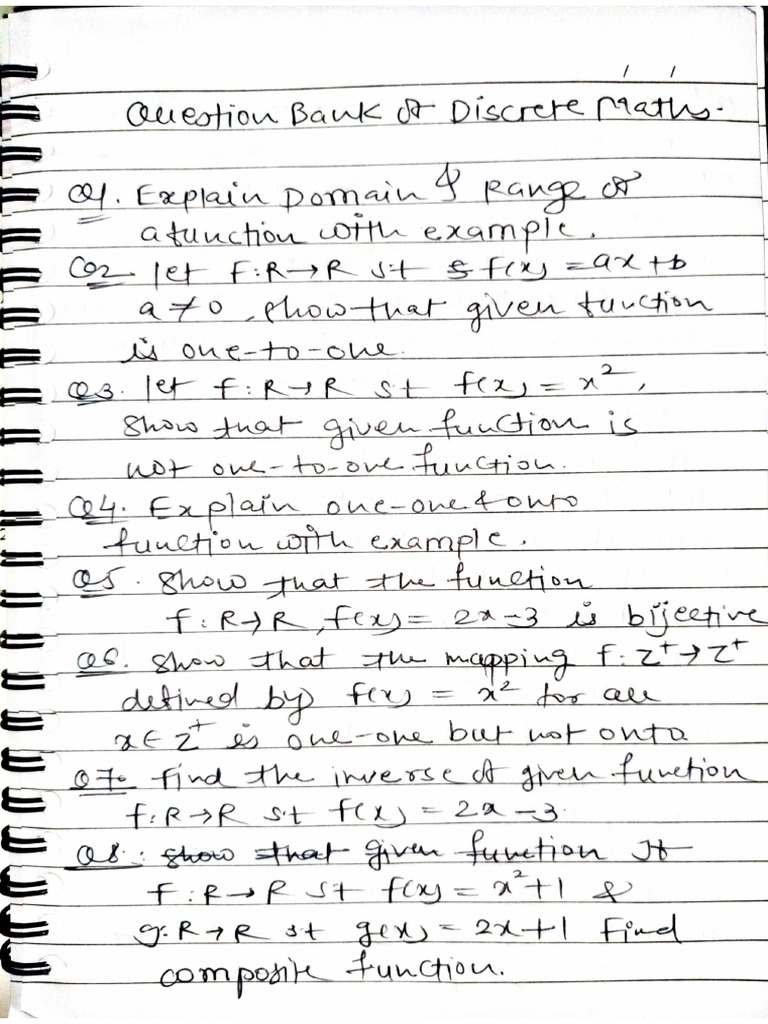 / /
Question Bank of Discrete Maths.
Q1. Explain Domain & Range of
a function with example.
Q2. let F: R→R s.t f(x) = ax+b
a ≠ 0, show that given function
is one-to-one.
Q3. let f: R→R s.t f(x) = x²,
Show that given function is
not one-to-one function.
Q4. Explain one-one & onto
function with example.
Q5. Show that the function
f: R→R, f(x) = 2x-3 is bijective
Q6. Show that the mapping f: Z⁺→Z⁺
defined by f(x) = x² for all
x ∈ Z⁺ is one-one but not onto
Q7. find the inverse of given function
f: R→R s.t f(x) = 2x-3.
Q8. : show that given function If
f: R→R st f(x) = x²+1 &
g: R→R st g(x) = 2x+1 Find
composite function.